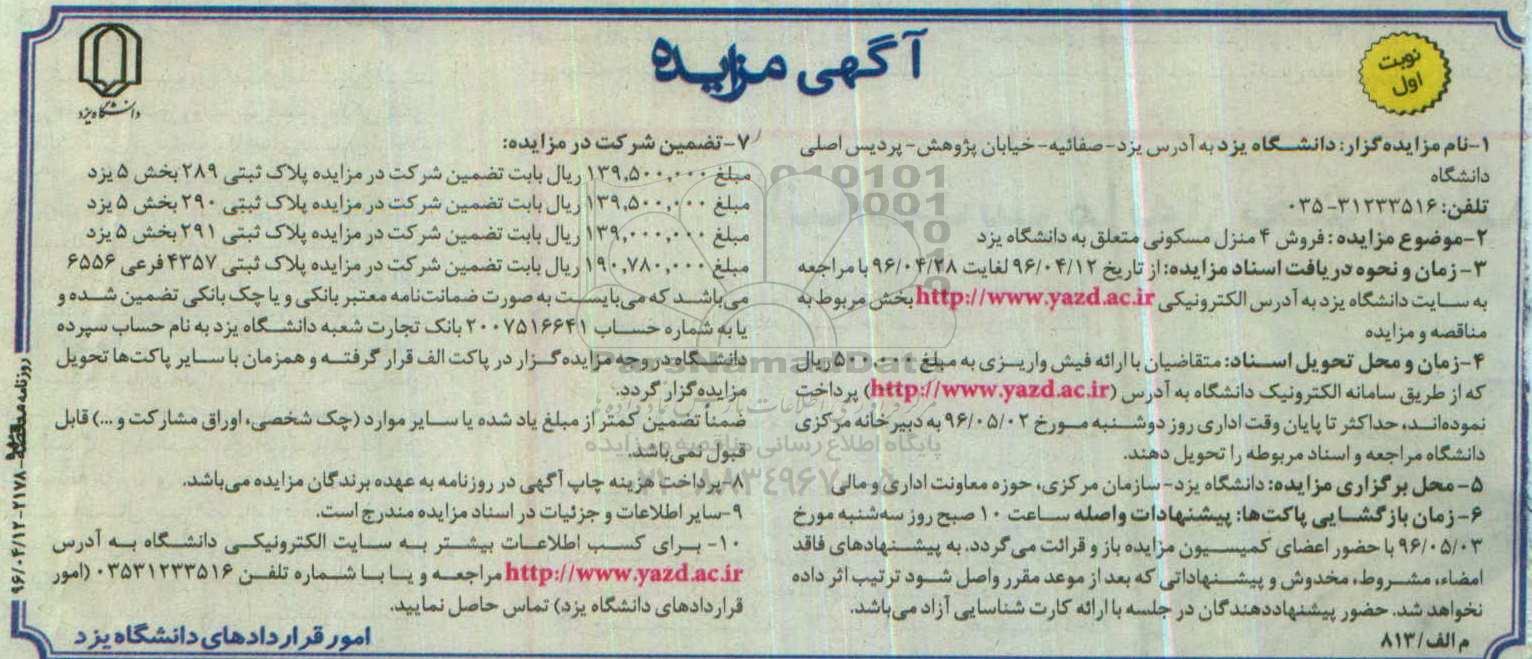 نوبت
اول
آگهی مزایده
دانشگاه یزد
۱-نام مزایده‌گزار: دانشگاه یزد به آدرس یزد-صفائیه-خیابان پژوهش-پردیس اصلی
دانشگاه
تلفن: ۳۱۲۳۳۵۱۶-۰۳۵
۲-موضوع مزایده: فروش ۴ منزل مسکونی متعلق به دانشگاه یزد
۳- زمان و نحوه دریافت اسناد مزایده: از تاریخ ۹۶/۰۴/۱۲ لغایت ۹۶/۰۴/۲۸ با مراجعه
به سایت دانشگاه یزد به آدرس الکترونیکی http://www.yazd.ac.ir بخش مربوط به
مناقصه و مزایده
۴-زمان و محل تحویل اسناد: متقاضیان با ارائه فیش واریزی به مبلغ ۵۰۰,۰۰۰ ریال
که از طریق سامانه الکترونیک دانشگاه به آدرس (http://www.yazd.ac.ir) پرداخت
نموده‌اند، حداکثر تا پایان وقت اداری روز دوشنبه مورخ ۹۶/۰۵/۰۲ به دبیرخانه مرکزی
دانشگاه مراجعه و اسناد مربوطه را تحویل دهند.
۵- محل برگزاری مزایده: دانشگاه یزد-سازمان مرکزی، حوزه معاونت اداری و مالی
۶-زمان بازگشایی پاکت‌ها: پیشنهادات واصله ساعت ۱۰ صبح روز سه‌شنبه مورخ
۹۶/۰۵/۰۳ با حضور اعضای کمیسیون مزایده باز و قرائت می‌گردد. به پیشنهادهای فاقد
امضاء، مشروط، مخدوش و پیشنهاداتی که بعد از موعد مقرر واصل شود ترتیب اثر داده
نخواهد شد. حضور پیشنهاددهندگان در جلسه با ارائه کارت شناسایی آزاد می‌باشد.
م الف/۸۱۳
۷-تضمین شرکت در مزایده:
مبلغ ۱۳۹,۵۰۰,۰۰۰ ریال بابت تضمین شرکت در مزایده پلاک ثبتی ۲۸۹ بخش ۵ یزد
مبلغ ۱۳۹,۵۰۰,۰۰۰ ریال بابت تضمین شرکت در مزایده پلاک ثبتی ۲۹۰ بخش ۵ یزد
مبلغ ۱۳۹,۰۰۰,۰۰۰ ریال بابت تضمین شرکت در مزایده پلاک ثبتی ۲۹۱ بخش ۵ یزد
مبلغ ۱۹۰,۷۸۰,۰۰۰ ریال بابت تضمین شرکت در مزایده پلاک ثبتی ۴۳۵۷ فرعی ۶۵۵۶
می‌باشد که می‌بایست به صورت ضمانت‌نامه معتبر بانکی و یا چک بانکی تضمین شده و
یا به شماره حساب ۲۰۰۷۵۱۶۶۴۱ بانک تجارت شعبه دانشگاه یزد به نام حساب سپرده
دانشگاه در وجه مزایده‌گزار در پاکت الف قرار گرفته و همزمان با سایر پاکت‌ها تحویل
مزایده‌گزار گردد.
ضمناً تضمین کمتر از مبلغ یاد شده یا سایر موارد (چک شخصی، اوراق مشارکت و ...) قابل
قبول نمی‌باشد.
۸-پرداخت هزینه چاپ آگهی در روزنامه به عهده برندگان مزایده می‌باشد.
۹-سایر اطلاعات و جزئیات در اسناد مزایده مندرج است.
۱۰- برای کسب اطلاعات بیشتر به سایت الکترونیکی دانشگاه به آدرس
http://www.yazd.ac.ir مراجعه و یا با شماره تلفن ۰۳۵۳۱۲۳۳۵۱۶ (امور
قراردادهای دانشگاه یزد) تماس حاصل نمایید.
امور قراردادهای دانشگاه یزد
ParsNamadData
پایگاه اطلاع رسانی مناقصه و مزایده